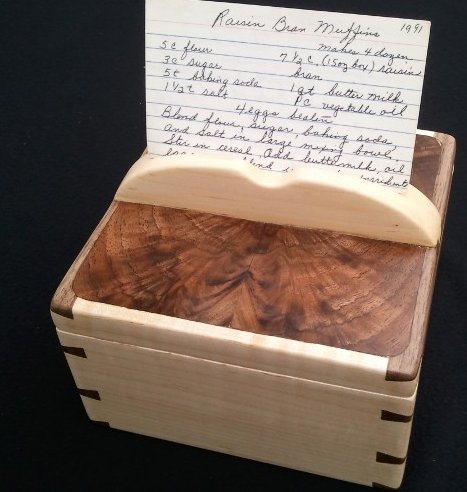 Raisin Bran Muffins 1991
makes 4 dozen
5c flour 7 1/2 c. (15oz box) raisin
3c sugar bran
5t baking soda 1 qt butter milk
1 1/2 t salt 1c vegetable oil
4 eggs beaten
Blend flour, sugar, baking soda,
and salt in large mixing bowl.
Stir in cereal, add buttermilk, oil